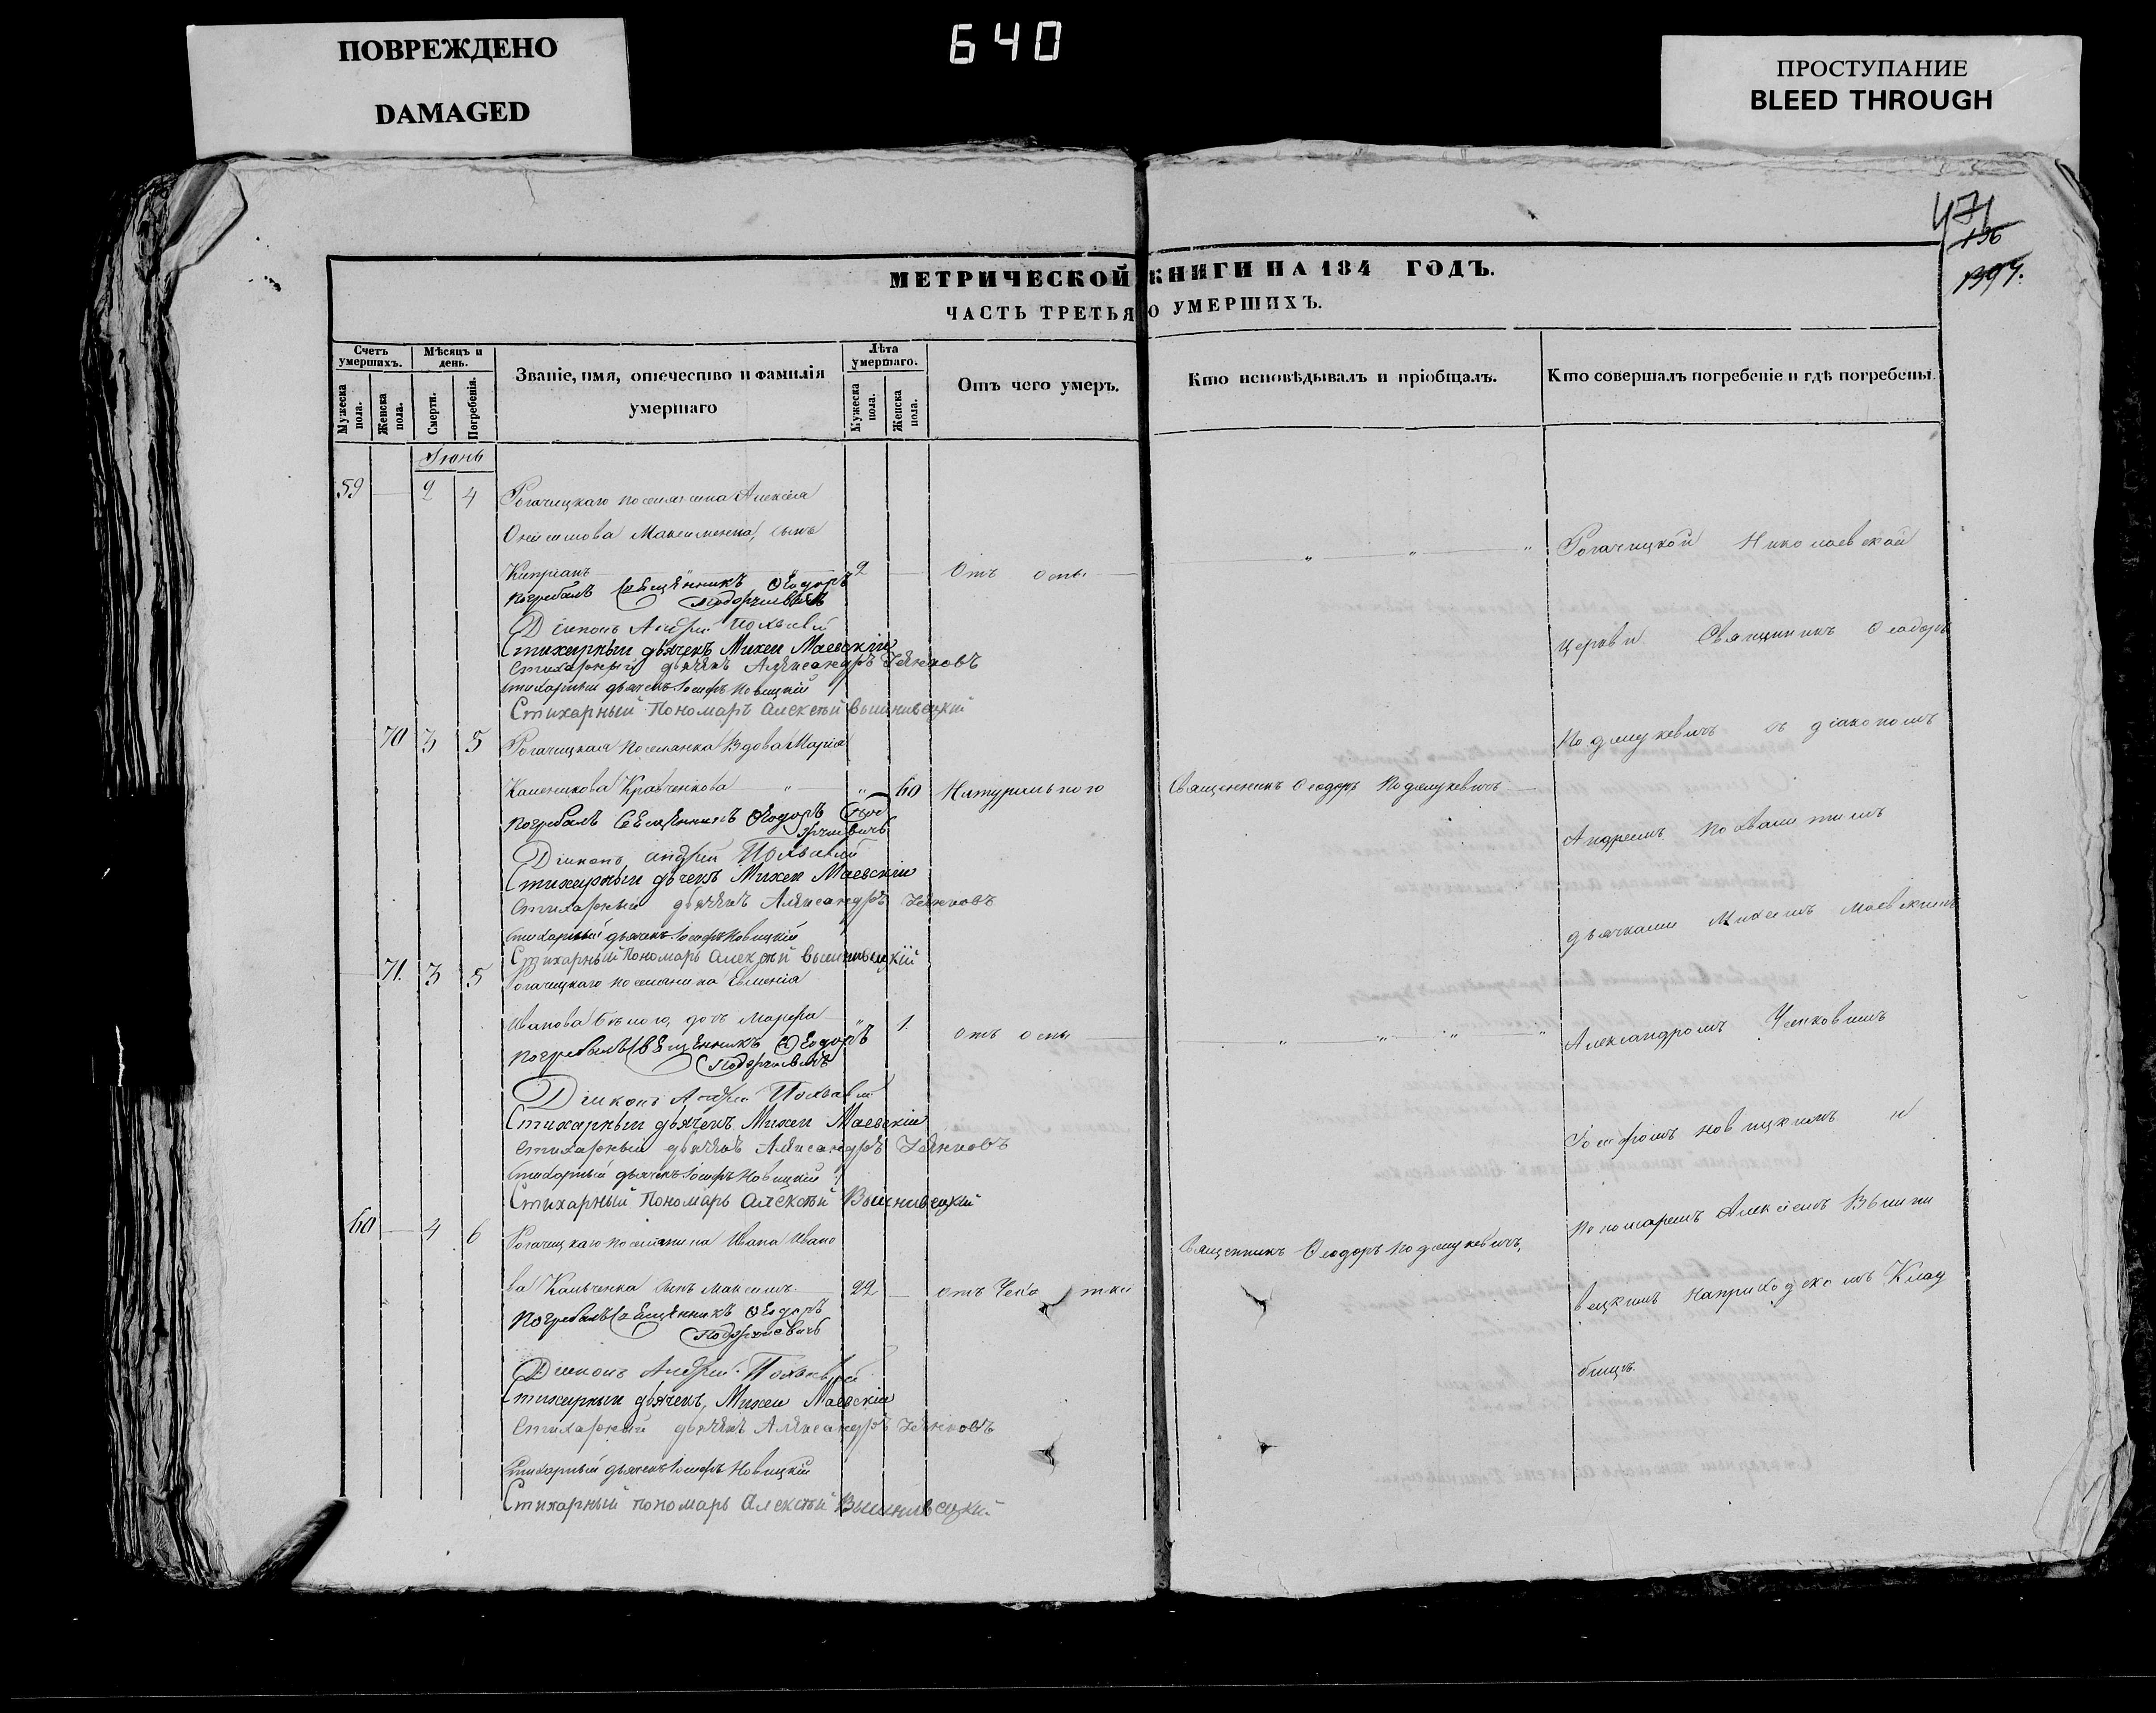 ПОВРЕЖДЕНО
DAMAGED
640
ПРОСТУПАНИЕ
BLEED THROUGH
471
136
МЕТРИЧЕСКОЙ КНИГИ НА 184 ГОДЪ.
ЧАСТЬ ТРЕТЬЯ О УМЕРШИХЪ.
Счетъ умершихъ.
Мужеска пола.
Женска пола.
Мѣсяцъ и день.
Смерти.
Погребенія.
Званіе, имя, отечество и фамилія умершаго
Лѣта умершаго.
Мужеска пола.
Женска пола.
Отъ чего умеръ.
Кто исповѣдывалъ и пріобщалъ.
Кто совершалъ погребеніе и гдѣ погребены.
Іюнь
59 2 4 Рогачицкаго поселянина Алексія
Онисимова Максименка, сынъ
Кипріанъ 2 Отъ оспы
Погребалъ Священникъ Ѳеодоръ
Діаконъ Андрей
Стихарный дьячекъ Михей Маевскій
Стихарный дьячекъ Александръ
Стихарный дьячекъ Іосифъ Новицкій
Стихарный Пономарь Алексѣй Вышнивецкій
70 3 5 Рогачицкая поселянка Вдова Марія
Кравченкова 60 Натурального Священникъ Ѳеодоръ
Погребалъ Священникъ Ѳеодоръ
Діаконъ Андрей
Стихарный дьячекъ Михей Маевскій
Стихарный дьячекъ Александръ
Стихарный дьячекъ Іосифъ Новицкій
Стихарный Пономарь Алексѣй Вышнивецкій
71. 3 5 Рогачицкаго поселянина Евменія
Иванова Бѣлого, дочь Марфа 1. отъ оспы
Погребалъ Священникъ Ѳеодоръ
Діаконъ Андрей
Стихарный дьячекъ Михей Маевскій
Стихарный дьячекъ Александръ
Стихарный дьячекъ Іосифъ Новицкій
Стихарный Пономарь Алексѣй Вышнивецкій
60 4 6 Рогачицкаго поселянина Ивана Ивано
ва сынъ Максимъ 22 отъ Чехотки Священникъ Ѳеодоръ
Погребалъ Священникъ Ѳеодоръ
Діаконъ Андрей
Стихарный дьячекъ, Михей Маевскій
Стихарный дьячекъ Александръ
Стихарный дьячекъ Іосифъ Новицкій
Стихарный пономарь Алексѣй Вышнивецкій
Рогачицкой Николаевской
церкви Священникъ Ѳеодоръ
съ діакономъ
Андреемъ
дьячками Михеемъ Маевскимъ
Александромъ
Іосифомъ Новицкимъ и
Пономаремъ Алексіемъ Вышни
вецкимъ на приходскомъ Клад
бищѣ.